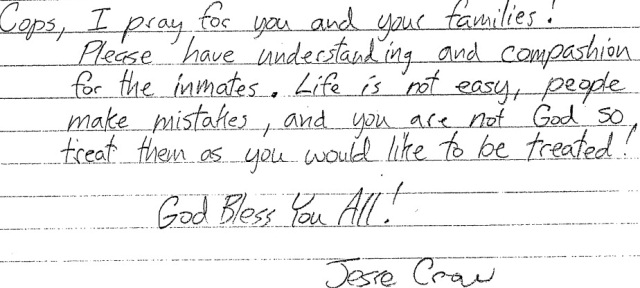 Cops, I pray for you and your families!
Please have understanding and compashion
for the inmates. Life is not easy, people
make mistakes, and you are not God so,
treat them as you would like to be treated!
God Bless You All!
Jesse Crow